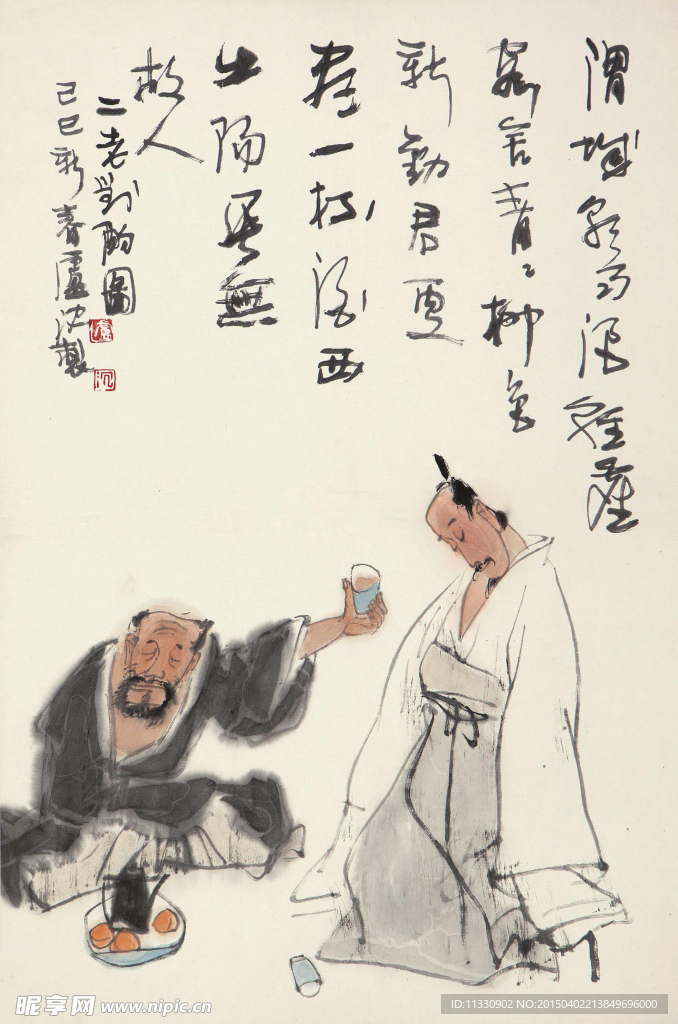 渭城朝雨浥輕塵
客舍青々柳色
新勸君更
盡一杯酒西
出陽關無
故人
二老對酌圖
己巳新春盧沉製
盧
沉
昵享网 www.nipic.cn
ID:11330902 NO:20150402213849696000